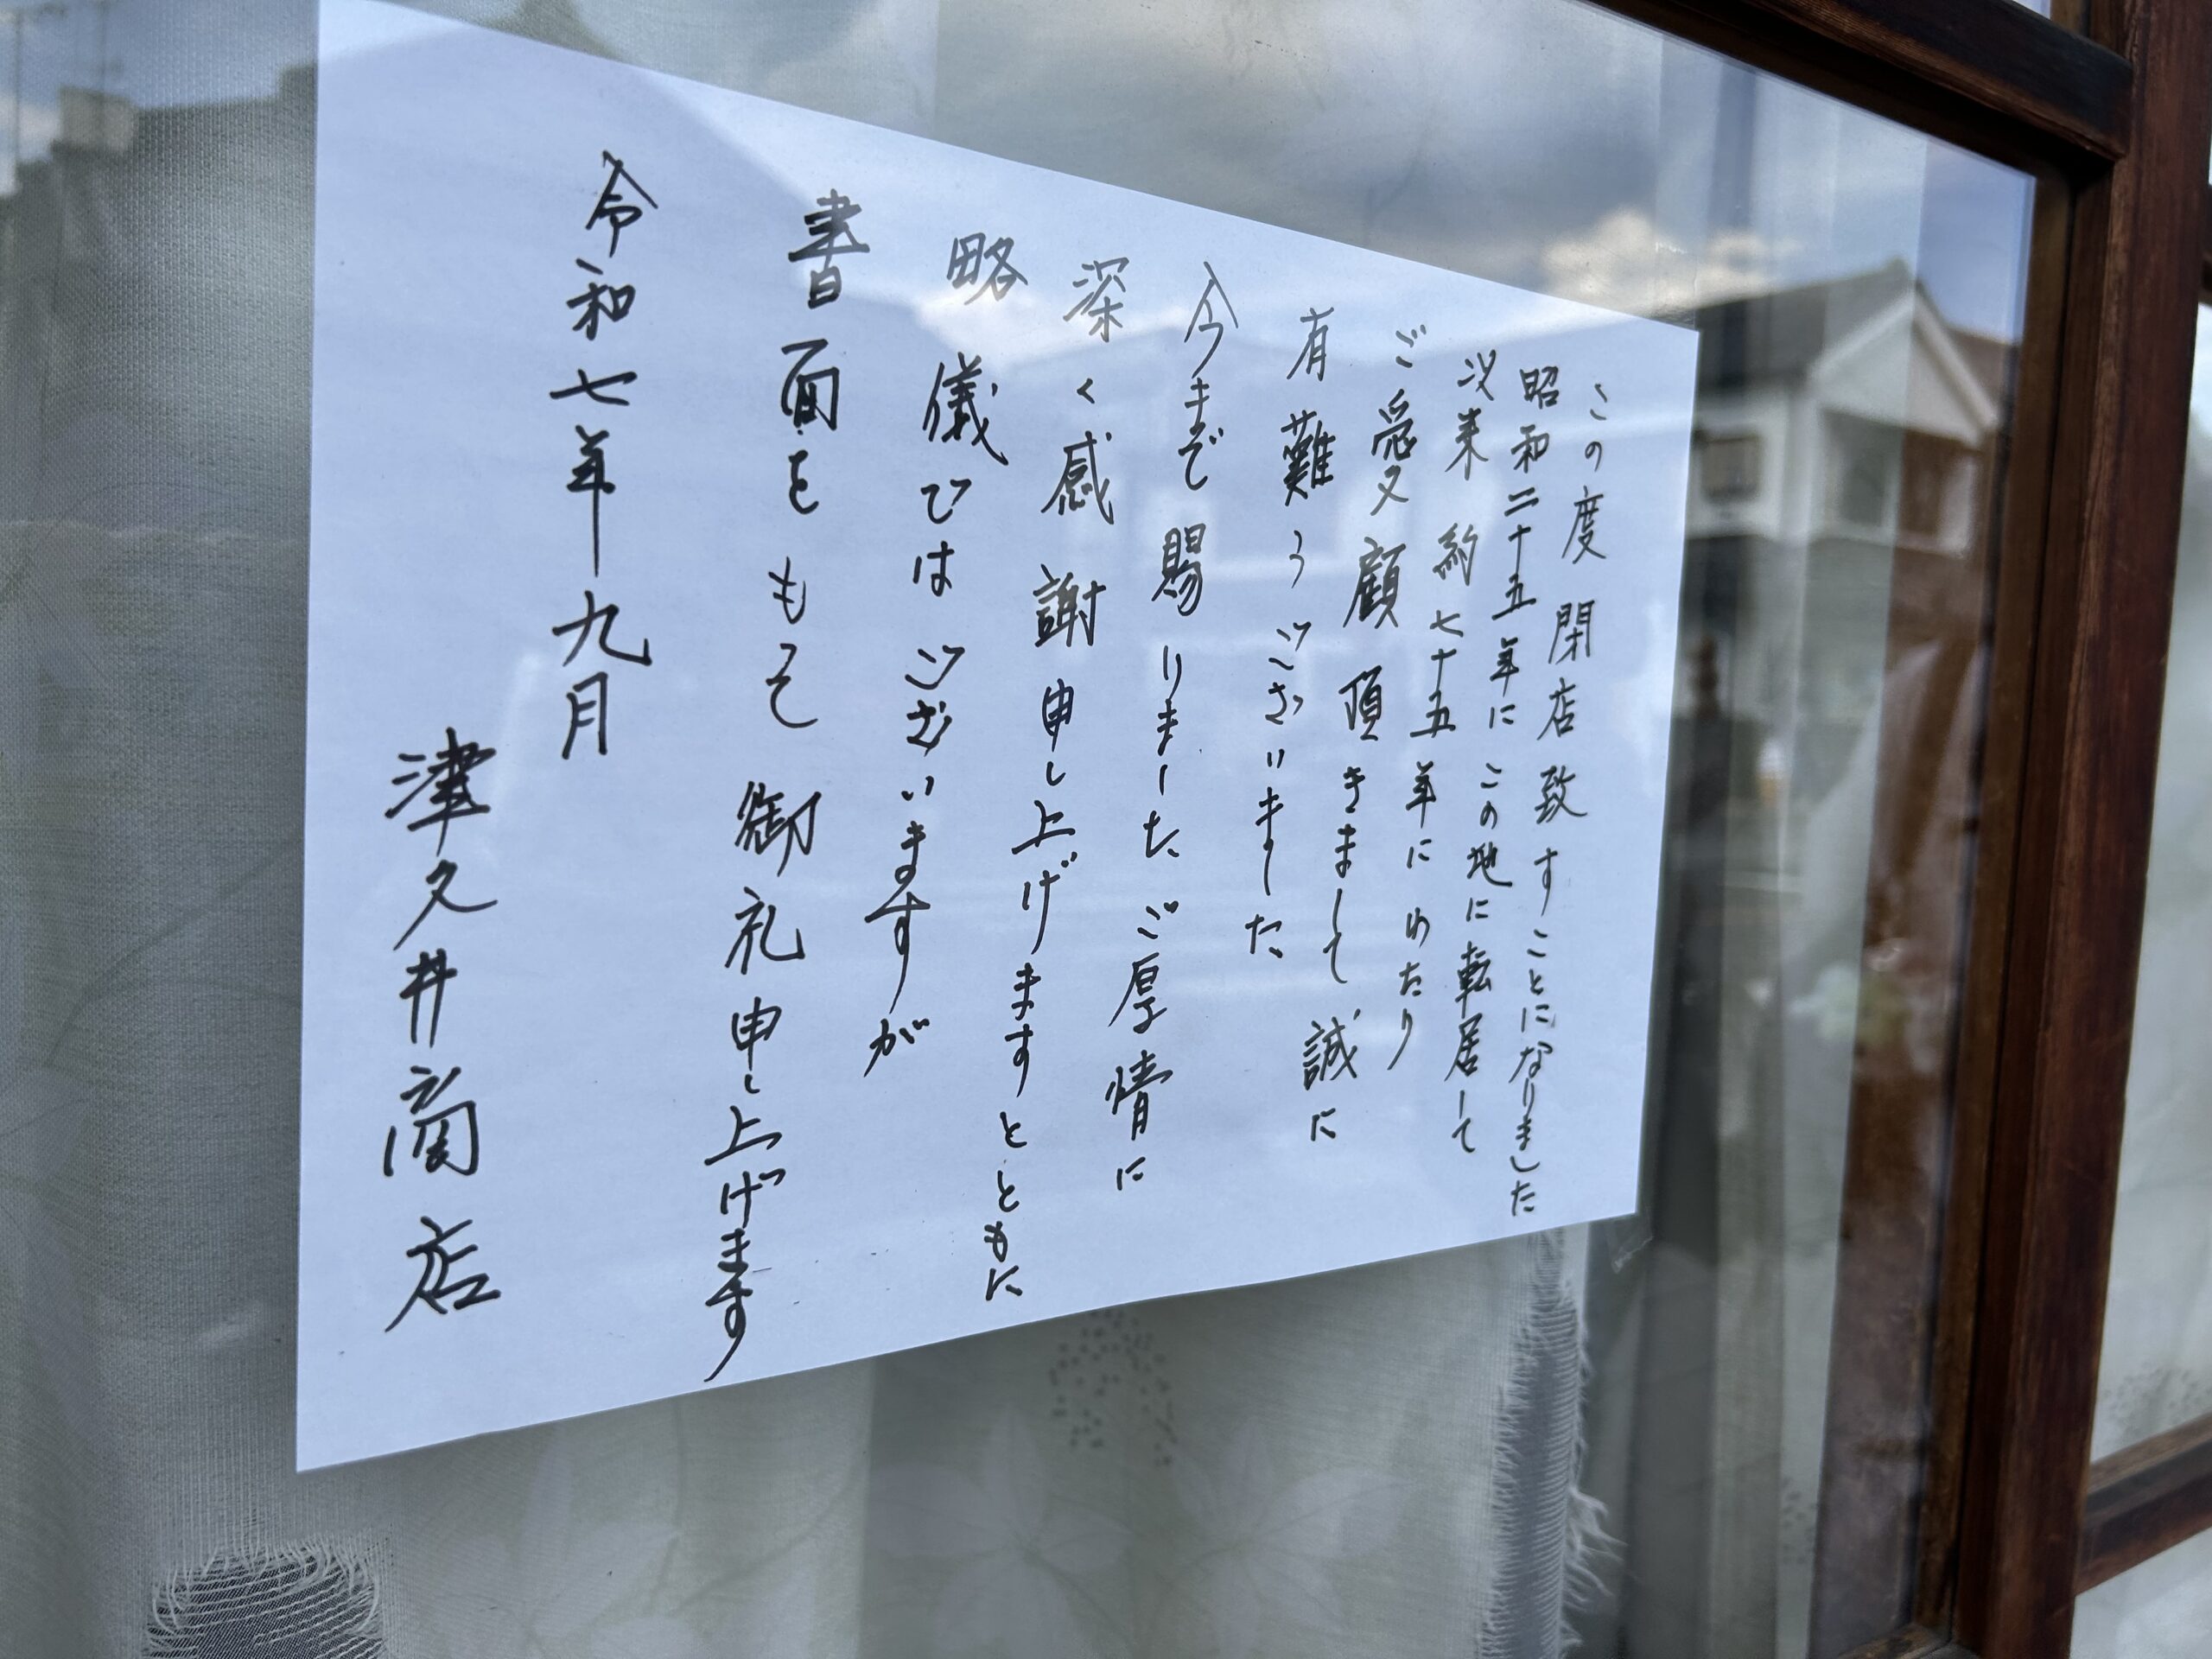 この度 閉店致すことになりました
昭和二十五年にこの地に転居して
以来 約七十五年にわたり
ご愛顧頂きまして誠に
有難うございました
今まで賜りましたご厚情に
深く感謝申し上げますとともに
略儀ではございますが
書面をもそ御礼申し上げます
令和七年九月
津久井商店